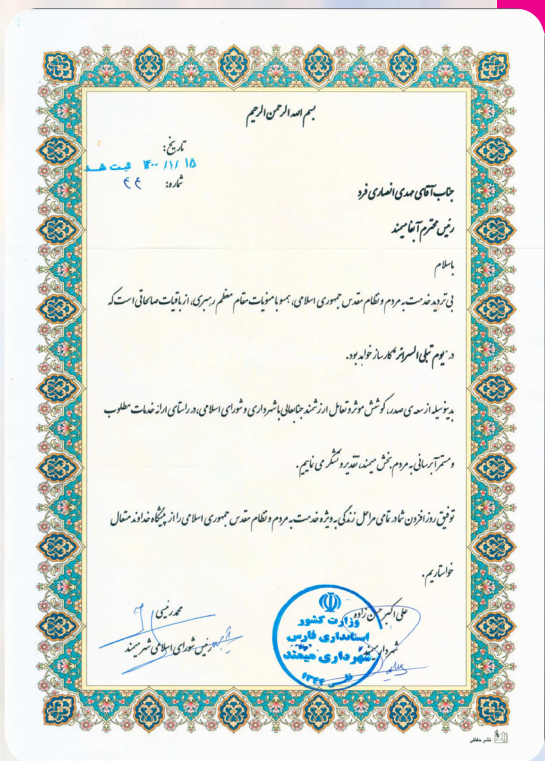 بسم الله الرحمن الرحیم
تاریخ:
۱۴۰۰/۱۱/۱۵ ثبت شد
شماره: ۴۴
جناب آقای مهدی انصاری فرد
رئیس محترم آبفا میمند
باسلام
بی تردید خدمت به مردم و نظام مقدس جمهوری اسلامی، همسو با منویات مقام معظم رهبری، از باقیات صالحاتی است که
در "یوم تبلی السرائر" کارساز خواهد بود.
بدینوسیله از سعه ی صدر، کوشش موثر و تعامل ارزشمند جنابعالی با شهرداری و شورای اسلامی، در راستای ارائه خدمات مطلوب
و مستمر آبرسانی به مردم بخش میمند، تقدیر و تشکر می نماییم.
توفیق روزافزون شما در تمامی مراحل زندگی به ویژه خدمت به مردم و نظام مقدس جمهوری اسلامی را از پیشگاه خداوند متعال
خواستاریم.
علی اکبر حسن زاده
شهردار میمند
محمد رئیسی
رئیس شورای اسلامی شهر میمند
وزارت کشور
استانداری فارس
شهرداری میمند
نشر حافظی